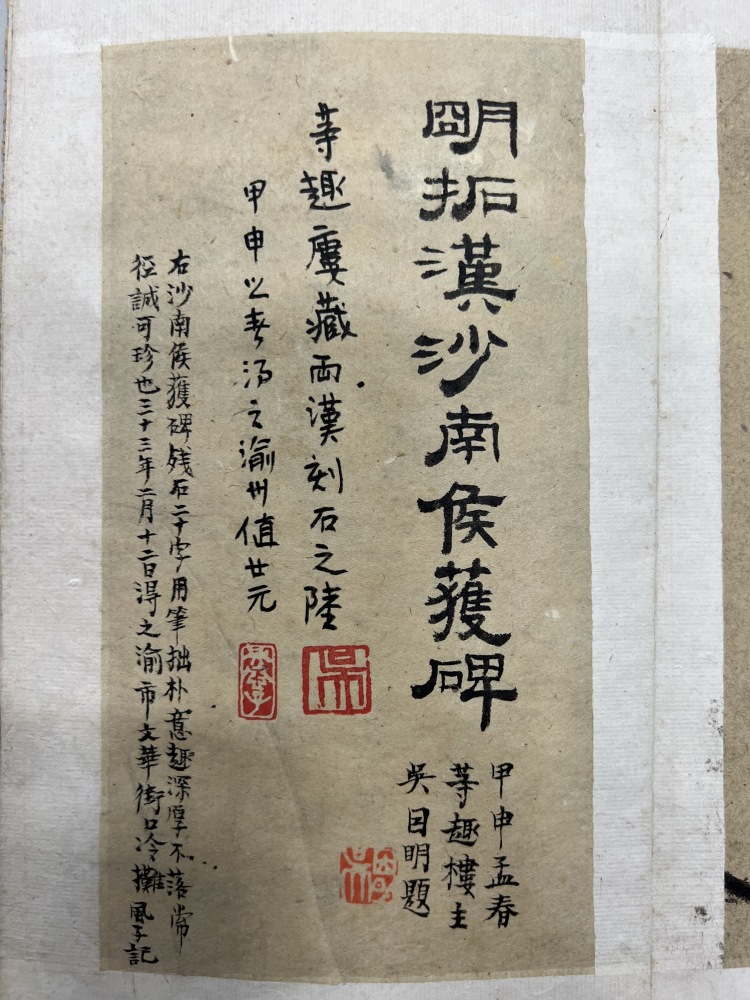 明拓漢沙南侯獲碑
甲申孟春
等趣樓主
吳目明題
等趣廔藏兩漢刻石之陸
甲申以春得之渝州值廿元
右沙南侯獲碑残石二十字用筆拙朴意趣深厚不落常
徑誠可珍也三十三年二月十二日得之渝市文華街口冷攤風子記